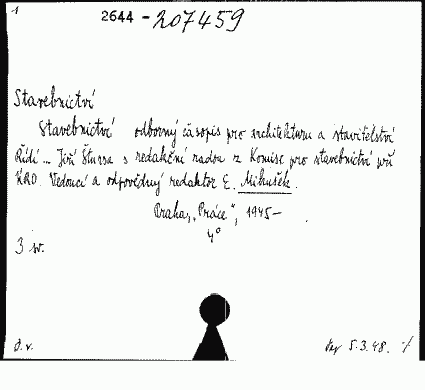 1
2644 - 207459
Stavebnictví
Stavebnictví odborný časopis pro architekturu a stavitelství
Řídí ... Jiří Štursa s redakční radou z Komise pro stavebnictví při
ÚRO. Vedoucí a odpovědný redaktor E. Mikušek.
Praha, "Práce", 1945-
4°
3 sv.
d.v.
5.3.48.